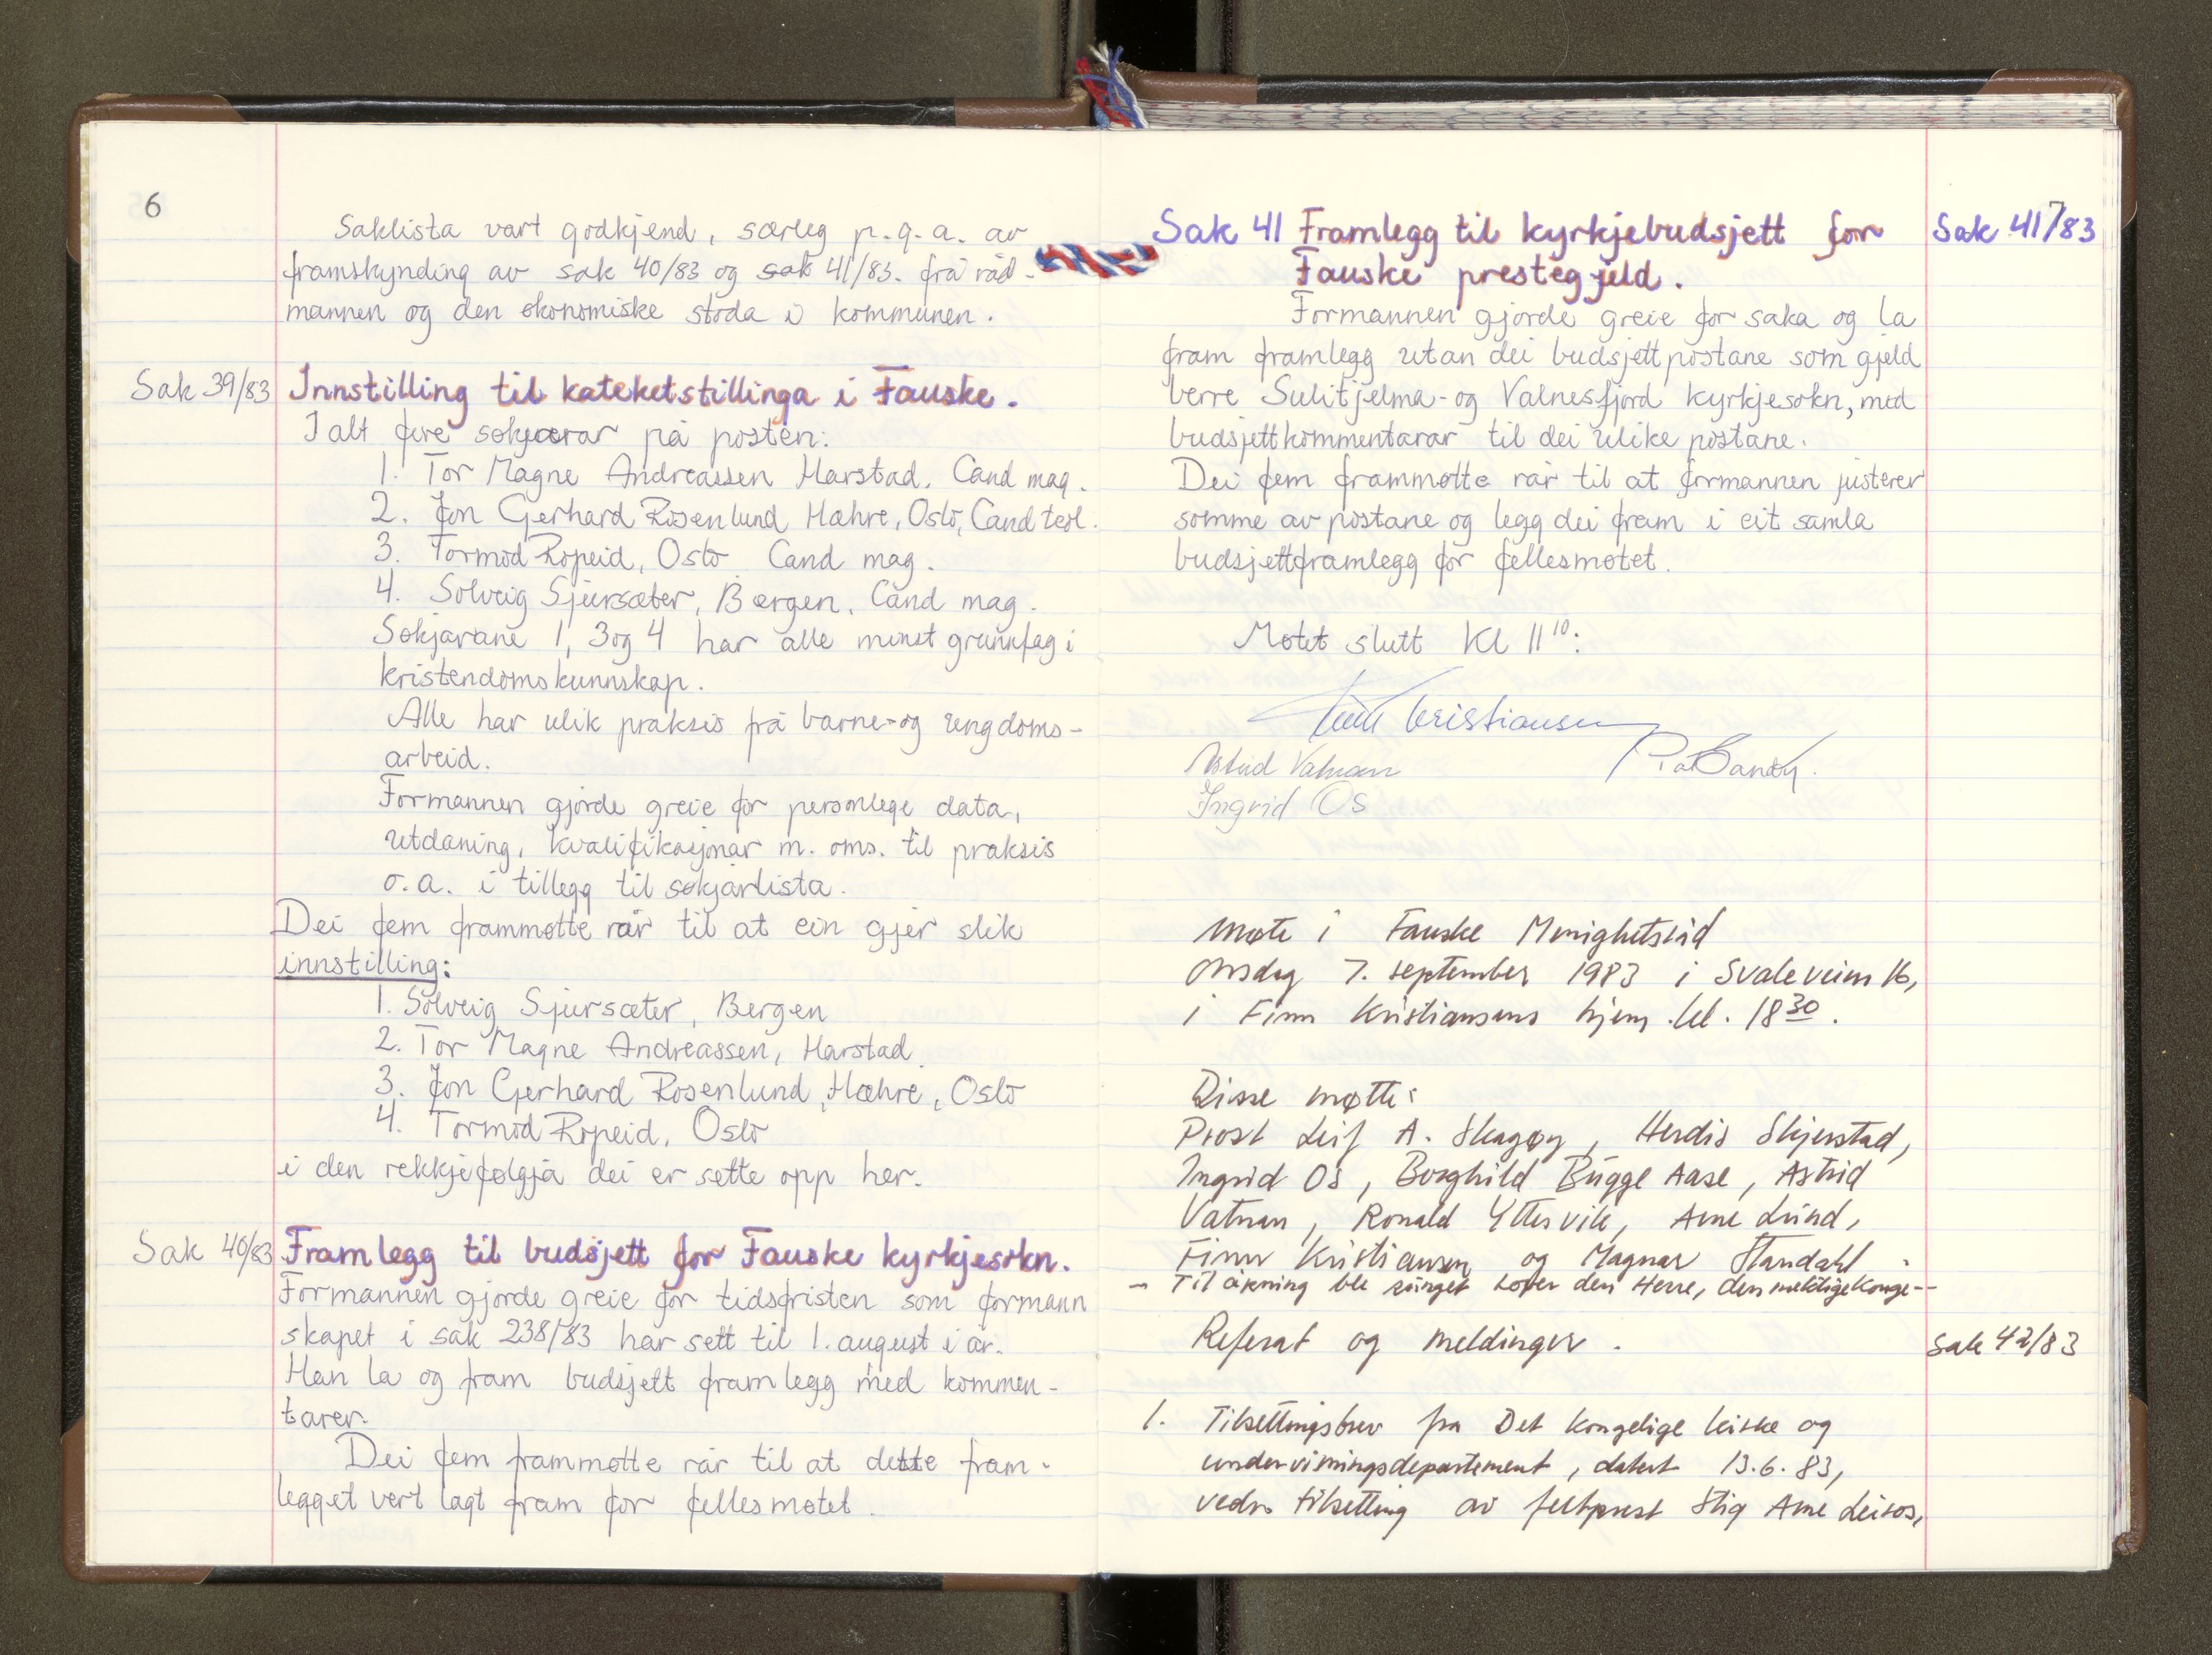 6
Saklista vart godkjend, særleg p.g.a. av
framskynding av sak 40/83 og sak 41/83. frå råd-
mannen og den økonomiske stoda i kommunen.
Sak 39/83 Innstilling til kateketstillinga i Fauske.
I alt fire søkjarar på posten:
1. Tor Magne Andreassen Harstad. Cand mag.
2. Jon Gerhard Rosenlund Hæhre, Oslo, Cand teol.
3. Tormod Ropeid, Oslo Cand mag.
4. Solveig Sjursæter, Bergen. Cand mag.
Søkjarane 1, 3 og 4 har alle minst grunnfag i
kristendomskunnskap.
Alle har ulik praksis frå barne- og ungdoms-
arbeid.
Formannen gjorde greie for personlege data,
utdaning, kvalifikasjonar m. oms. til praksis
o.a. i tillegg til søkjarlista.
Dei fem frammøtte rår til at ein gjer slik
innstilling:
1. Solveig Sjursæter, Bergen
2. Tor Magne Andreassen, Harstad
3. Jon Gerhard Rosenlund, Hæhre, Oslo
4. Tormod Ropeid, Oslo
i den rekkjefølgja dei er sette opp her.
Sak 40/83 Framlegg til budsjett for Fauske kyrkjesokn.
Formannen gjorde greie for tidsfristen som formann
skapet i sak 238/83 har sett til 1. august i år.
Han la og fram budsjett framlegg med kommen-
tarer.
Dei fem frammøtte rår til at dette fram-
legget vert lagt fram for fellesmøtet.
Sak 41 Framlegg til kyrkjebudsjett for Sak 41/83
Fauske prestegjeld.
Formannen gjorde greie for saka og la
fram framlegg utan dei budsjettpostane som gjeld
berre Sulitjelma- og Valnesfjord kyrkjesokn, med
budsjettkommentarar til dei ulike postane.
Dei fem frammøtte rår til at formannen justerer
somme av postane og legg dei fram i eit samla
budsjettframlegg for fellesmøtet.
Møtet slutt Kl 11 10:
Kristiansen
Astrid Vatnan
Ingrid Os
Møte i Fauske Menighetsråd
Onsdag 7. september 1983 i Svaleveien 16,
i Finn Kristiansens hjem kl. 18 30.
Disse møtte:
Prost Leif A. Skagøy, Herdis Skjerstad,
Ingrid Os, Borghild Bugge Aase, Astrid
Vatnan, Ronald Yttervik, Arne Lund,
Finn Kristiansen og Magnar Standahl.
- Til åpning ble sunget Lover den Herre, den mektige Konge--
Referat og meldinger. Sak 42/83
1. Tilsettingsbrev fra Det kongelige kirke og
undervisningsdepartement, datert 13.6.83,
vedr. tilsetting av feltprest Stig Arne Leiros,